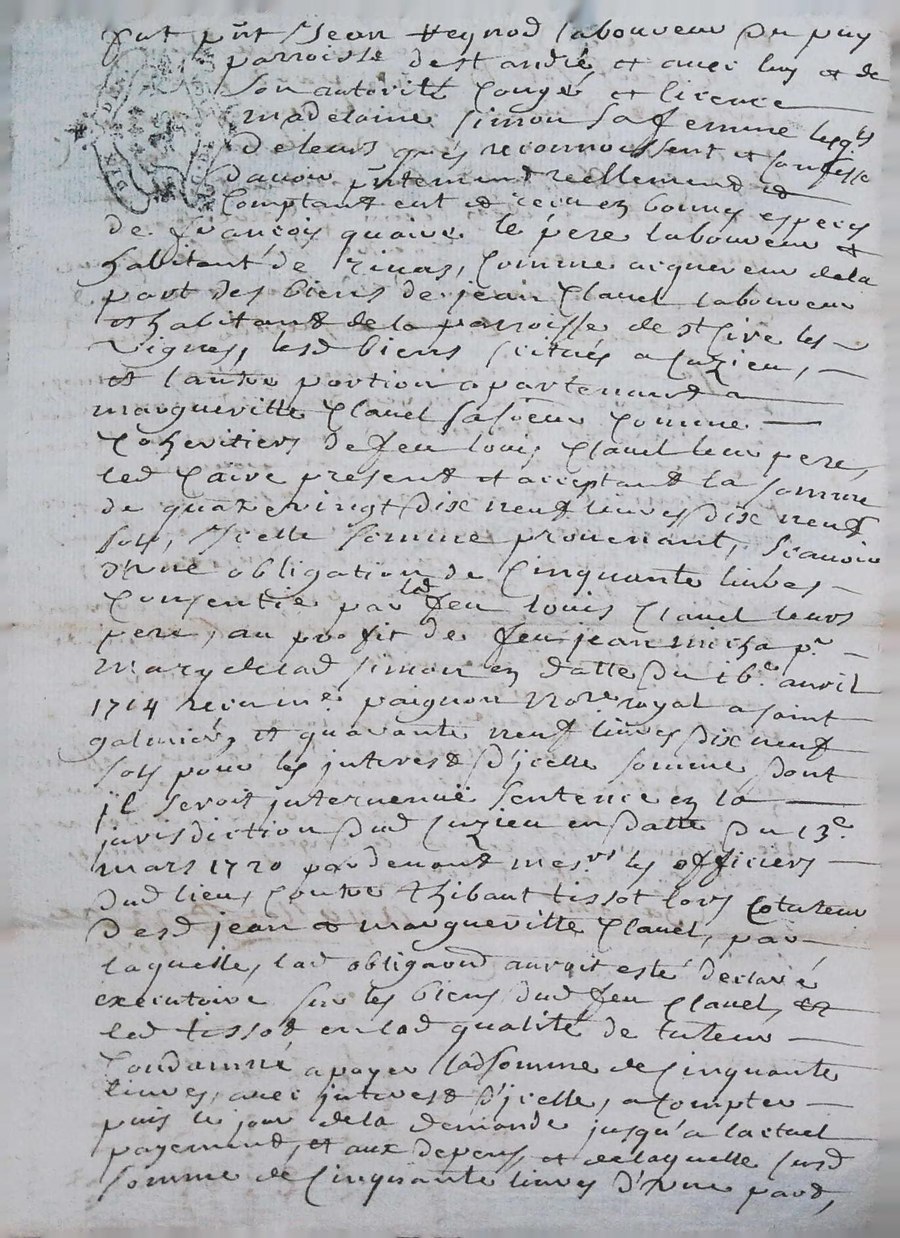 fut pnt Jean Heynod laboureur du puy
parroisse de st andré et avec luy et de
son autorité congé et licence
madelaine simon sa femme lesqls
de leurs grés reconnoissent et confesse
davoir pntement reellement et
comptant eut et receu en bonnes especes
de françois quaire le pere laboureur et
habitant de rivas, comme acquereur de la
part des biens de jean Clauel laboureur
et habitant de la parroisse de st Cire les
vignes, lesd biens scitués a Cuzieu,
et l'autre portion apartenant a
margueritte Clauel sa soeur comme
Cohéritiers de feu louis Clauel leur pere,
led Caire present et acceptant la somme
de quatrevingt dix neuf liures dix neuf
sols, Icelle somme prouenant, scauoir
d'une obligation de Cinquante liures
Consentie par led feu louis Clauel leurs
pere, au profit de feu jean micha pr
mary de lad simon en datte du 16e avril
1714 receu me paignon Nore royal a saint
galmier, et quarante neuf liures dix neuf
sols pour les interest d'jcelle somme dont
jl seroit interuenuë sentence en la
jurisdiction dud Cuzieu en datte du 13e
mars 1720 pardeuant mesrs les officiers
dud lieu, contre thibaut tissot lors cotuteur
desd jean et margueritte Clauel, par
laquelle, lad obligaond auroit esté declaré
executoire sur les biens dud feu Clauel, et
led tissot en lad qualité de tuteur
Condamné a payer lad somme de Cinquante
liures, avec interest d'jcelle, a compter
puis le jour de la demande jusqu'a lactuel
payement, et aux depens, et de laquelle susd
somme de Cinquante liures d'une part,